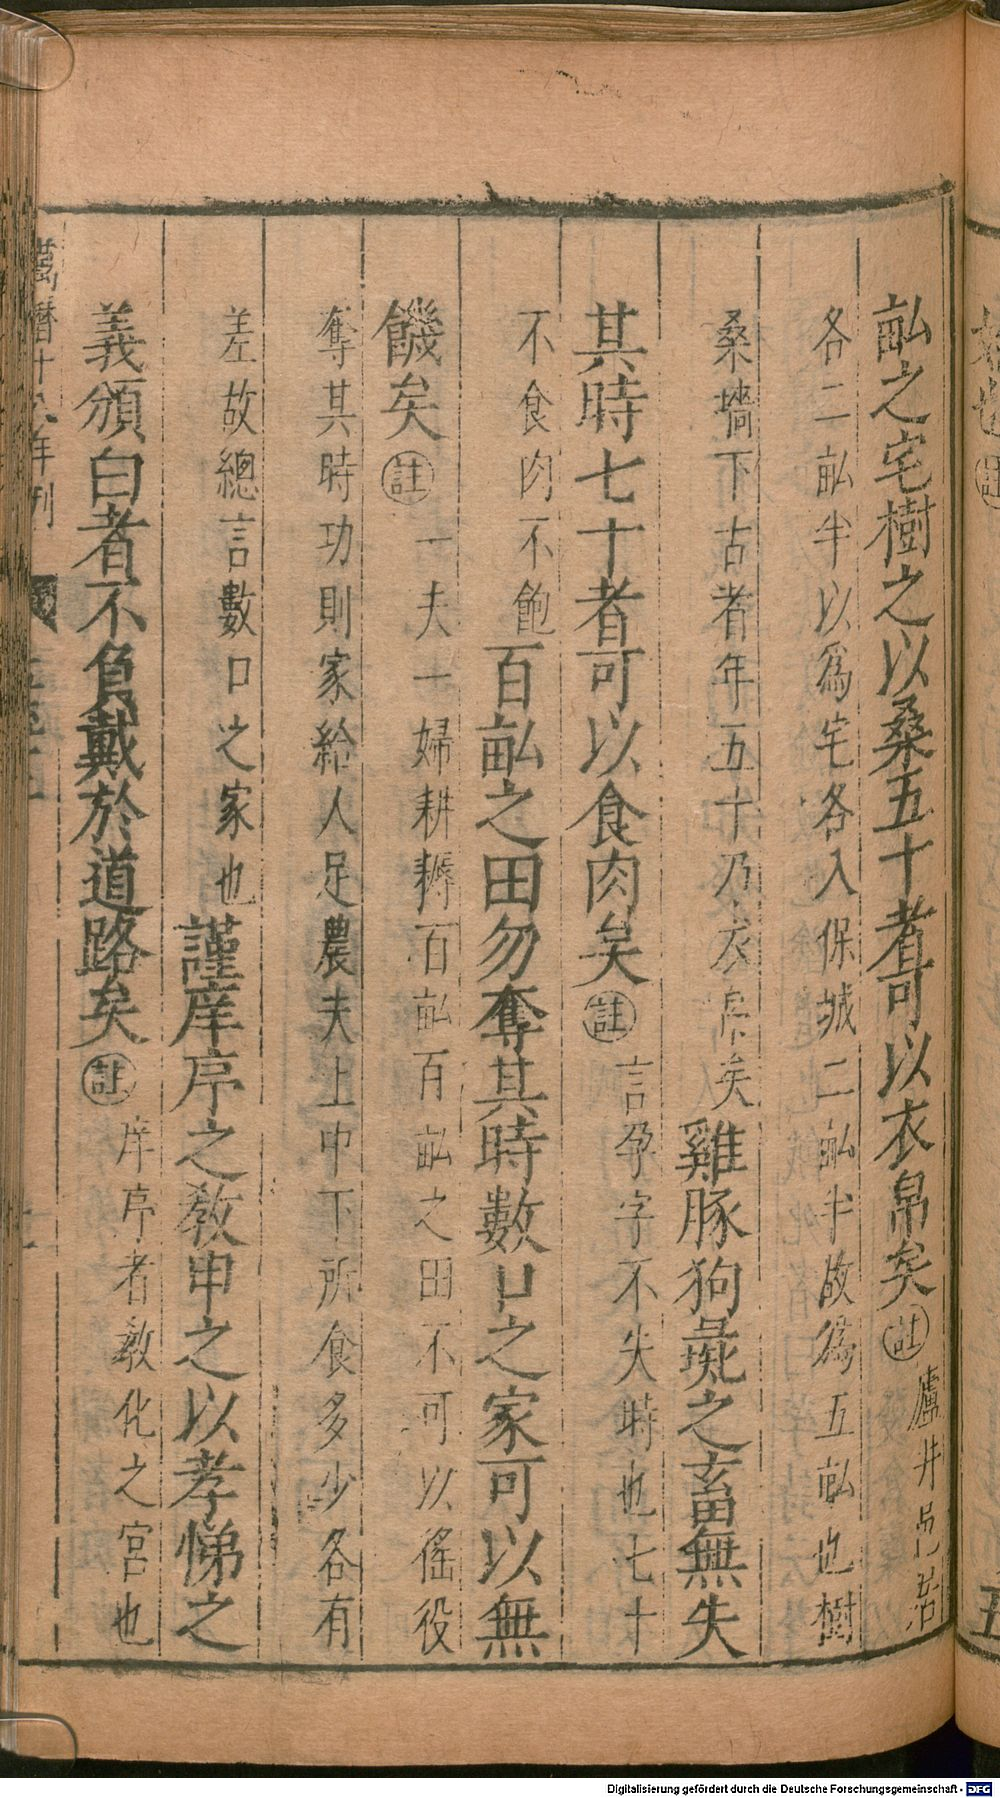 畝之宅樹之以桑五十者可以衣帛矣註廬井邑
各二畝半以爲宅各入保城二畝半故爲五畝也樹
桑墻下古者年五十乃衣帛矣雞豚狗彘之畜無失
其時七十者可以食肉矣註言孕字不失時也七十
不食肉不飽百畝之田勿奪其時數口之家可以無
饑矣註一夫一婦耕耨百畝百畝之田不可以徭役
奪其時功則家給人足農夫上中下所食多少各有
差故總言數口之家也謹庠序之教申之以孝悌之
義頒白者不負戴於道路矣註庠序者教化之宮也
萬曆十八年刊
Digitalisierung gefördert durch die Deutsche Forschungsgemeinschaft - DFG